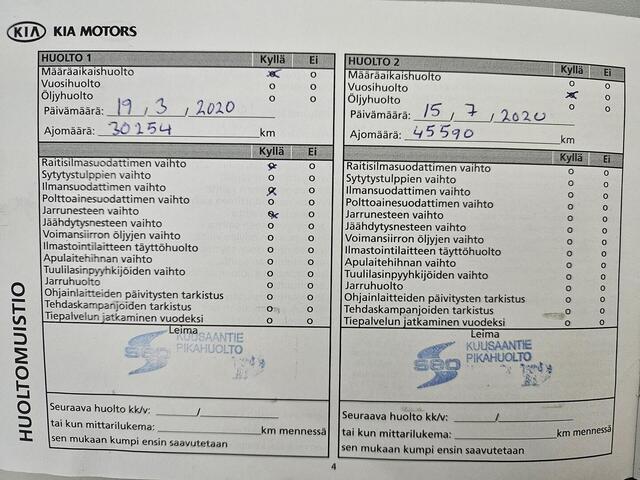 KIA KIA MOTORS
HUOLTO 1 Kyllä Ei
Määräaikaishuolto x o
Vuosihuolto o o
Öljyhuolto o o
Päivämäärä: 19, 3, 2020
Ajomäärä: 30254 km
Kyllä Ei
Raitisilmasuodattimen vaihto x o
Sytytystulppien vaihto o o
Ilmansuodattimen vaihto x o
Polttoainesuodattimen vaihto o o
Jarrunesteen vaihto x o
Jäähdytysnesteen vaihto o o
Voimansiirron öljyjen vaihto o o
Ilmastointilaitteen täyttöhuolto o o
Apulaitehihnan vaihto o o
Tuulilasinpyyhkijöiden vaihto o o
Jarruhuolto o o
Ohjainlaitteiden päivitysten tarkistus o o
Tehdaskampanjoiden tarkistus o o
Tiepalvelun jatkaminen vuodeksi o o
Leima
SEO KUUSAANTIE
PIKAHUOLTO
Seuraava huolto kk/v: /
tai kun mittarilukema: km mennessä
sen mukaan kumpi ensin saavutetaan
HUOLTO 2 Kyllä Ei
Määräaikaishuolto o o
Vuosihuolto x o
Öljyhuolto o o
Päivämäärä: 15, 7, 2020
Ajomäärä: 45590 km
Kyllä Ei
Raitisilmasuodattimen vaihto o o
Sytytystulppien vaihto o o
Ilmansuodattimen vaihto o o
Polttoainesuodattimen vaihto o o
Jarrunesteen vaihto o o
Jäähdytysnesteen vaihto o o
Voimansiirron öljyjen vaihto o o
Ilmastointilaitteen täyttöhuolto o o
Apulaitehihnan vaihto o o
Tuulilasinpyyhkijöiden vaihto o o
Jarruhuolto o o
Ohjainlaitteiden päivitysten tarkistus o o
Tehdaskampanjoiden tarkistus o o
Tiepalvelun jatkaminen vuodeksi o o
Leima
SEO KUUSAANTIE
PIKAHUOLTO
Seuraava huolto kk/v: /
tai kun mittarilukema: km mennessä
sen mukaan kumpi ensin saavutetaan
HUOLTOMUISTIO
4